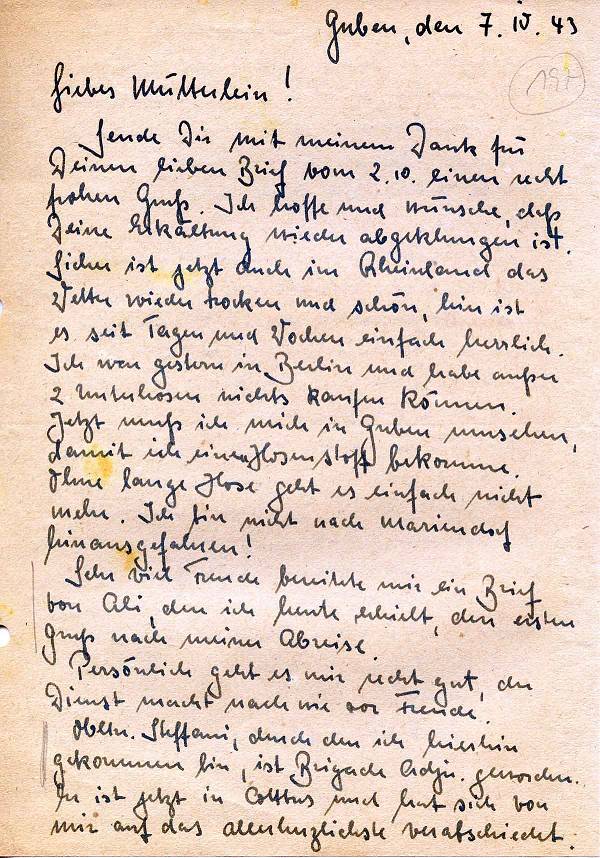 Guben, den 7. IV. 43
197
Liebes Mutterlein!
Sende Dir mit meinem Dank für
Deinen lieben Brief vom 2. 10. einen recht
frohen Gruß. Ich hoffe und wünsche, daß
Deine Erkältung wieder abgeklungen ist.
Sicher ist jetzt auch im Rheinland das
Wetter wieder trocken und schön, hier ist
es seit Tagen und Wochen einfach herrlich.
Ich war gestern in Berlin und habe außer
2 Unterhosen nichts kaufen können.
Jetzt muß ich mich in Guben umsehen,
damit ich einen Hosenstoff bekomme.
Ohne lange Hose geht es einfach nicht
mehr. Ich bin nicht nach Mariendorf
hinausgefahren!
Sehr viel Freude bereitete mir ein Brief
von Ali, den ich heute erhielt, den ersten
Gruß nach meiner Abreise.
Persönlich geht es mir recht gut, der
Dienst macht nach wie vor Freude.
Obltn. Steffani, durch den ich hierhin
gekommen bin, ist Brigade Adju. geworden.
Er ist jetzt in Cottbus und hat sich von
mir auf das allerherzlichste verabschiedet.